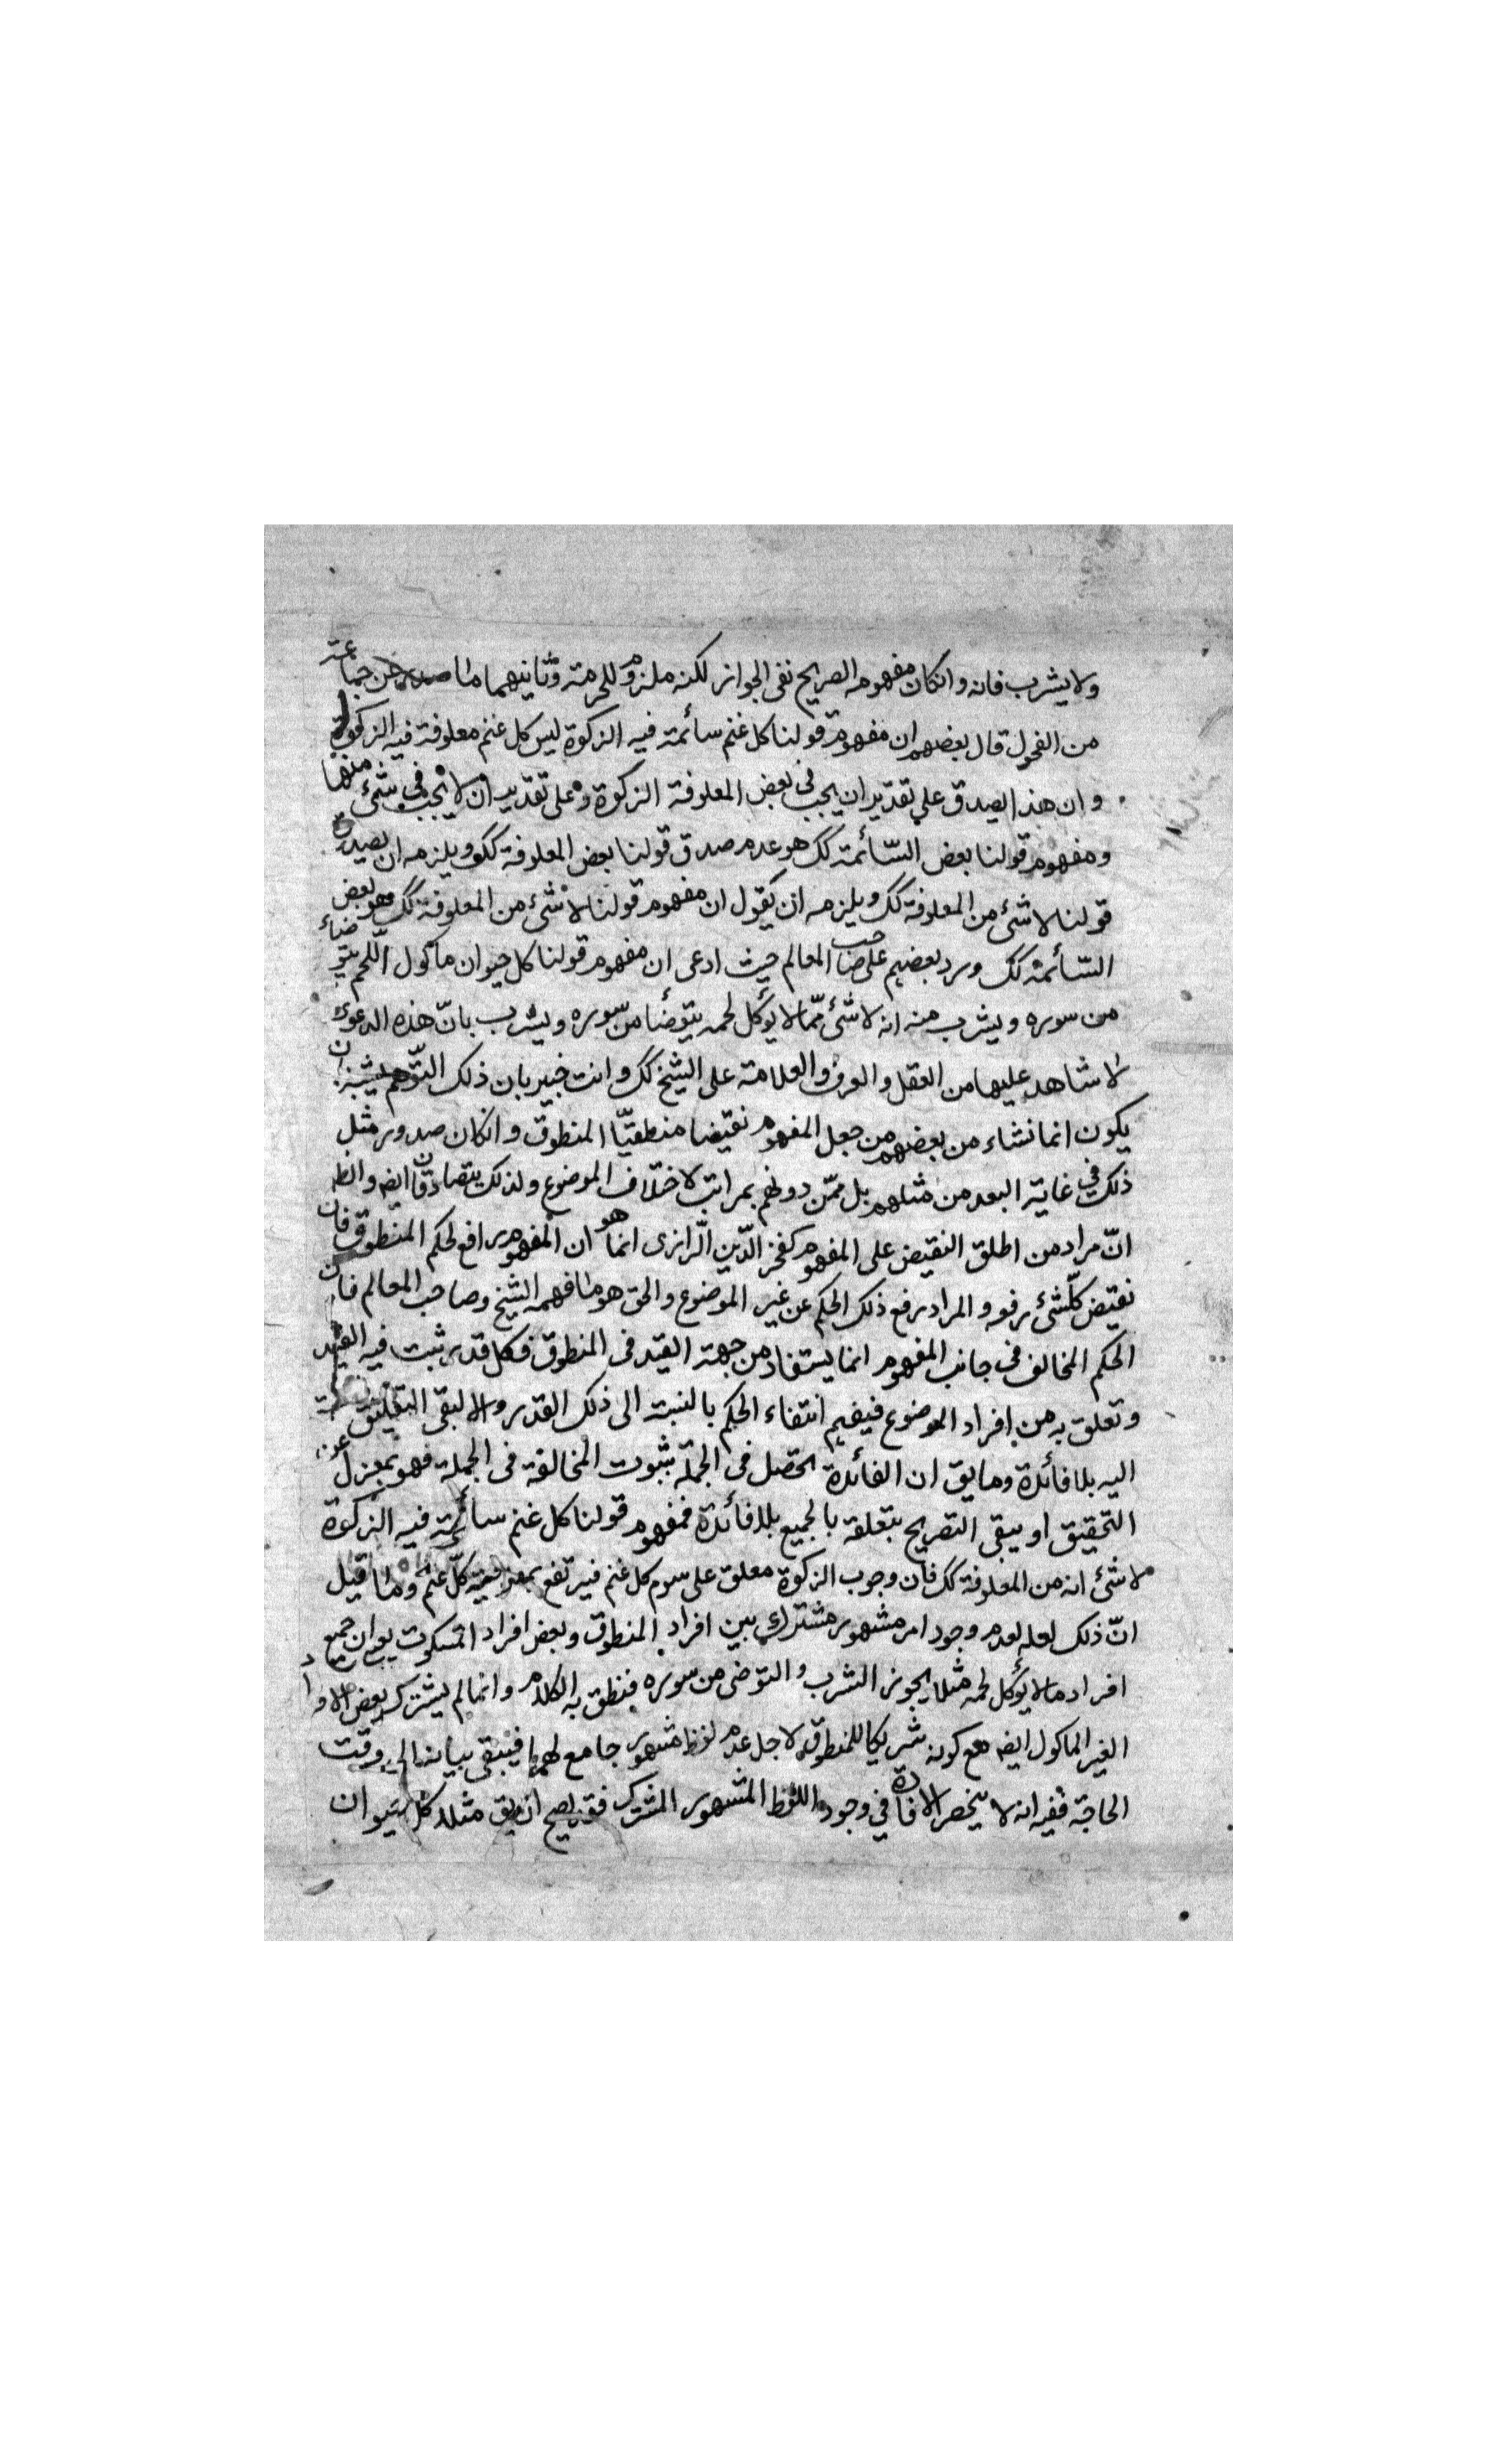 ولا يشرب فانه وانكان مفهومه الصريح نفى الجواز لكنه ملزوم للحرمة وثانيهما ما صدر عن جماعة
من الفحول قال بعضهم ان مفهوم قولنا كل غنم سائمة فيه الزكوة ليس كل غنم معلوفة فيه الزكوة
و ان هذا يصدق على تقدير ان يجب فى بعض المعلوفة الزكوة وعلى تقدير ان لا يجب فى شئ منها
ومفهوم قولنا بعض السّائمة كك هو عدم صدق قولنا بعض المعلوفة كك ويلزمه ان يصدق
قولنا لا شئ من المعلوفة كك ويلزمه ان يقول ان مفهوم قولنا لا شئ من المعلوفة كك هو بعض
السّائمة كك ورد بعضهم على صاحب المعالم حيث ادعى ان مفهوم قولنا كل حيوان مأكول اللّحم يتوضاء
من سوره ويشرب منه انه لا شئ ممّا لا يؤكل لحمه يتوضأ من سوره ويشرب بانّ هذه الدعوى
لا شاهد عليها من العقل والعرف والعلامة على الشيخ كك وانت خبير بان ذلك التّوهم يشبه ان
يكون انما نشاء من بعضهم من جعل المفهوم نقيضا منطقيّا المنطوق وانكان صدور مثل
ذلك فى غاية البعد من مثلهم بل ممّن دونهم بمراتب لاختلاف الموضوع ولذلك يتصادقان ايضه والظه
انّ مراد من اطلق النقيض على المفهوم كفخر الدّين الرّازى انما هو ان المفهوم رافع لحكم المنطوق فان
نقيض كلّ شئ رفعه والمراد رفع ذلك الحكم عن غير الموضوع والحق هو ما فهمه الشيخ وصاحب المعالم فان
الحكم المخالف فى جانب المفهوم انما يستفاد من جهة القيد فى المنطوق فكل قدر ثبت فيه القيد
وتعلق به من افراد الموضوع فيفهم انتفاء الحكم بالنسبة الى ذلك القدر والا لبقى التعليق بالنسبة
اليه بلا فائدة وما يق ان الفائدة تحصل فى الجملة بثبوت المخالفة فى الجملة فهو بمعزل عن
التحقيق او يبقى التصريح بتعلقه بالجميع بلا فائدة فمفهوم قولنا كل غنم سائمة فيه الزكوة
لا شئ انه من المعلوفة كك فان وجوب الزكوة معلق على سوم كل غنم فيرتفع بمعلوفية كلّ غنم وما قيل
انّ ذلك لعله لعدم وجود امر مشهور مشترك بين افراد المنطوق وبعض افراد المسكوت يعنى ان جميع
افراد ما لا يؤكل لحمه مثلا يجوز الشرب والتوضى من سوره فنطق به الكلام وانما لم يشترك بعض الافراد
الغير المأكول ايضه مع كونه شريكا للمنطوق لاجل عدم لفظ مشهور جامع لهما فيبقى بيانه الى وقت
الحاجة ففيه انه لا ينحصر الافادة فى وجود اللفظ المشهور المشترك فقد يصح ان يق مثلا كل حيوان